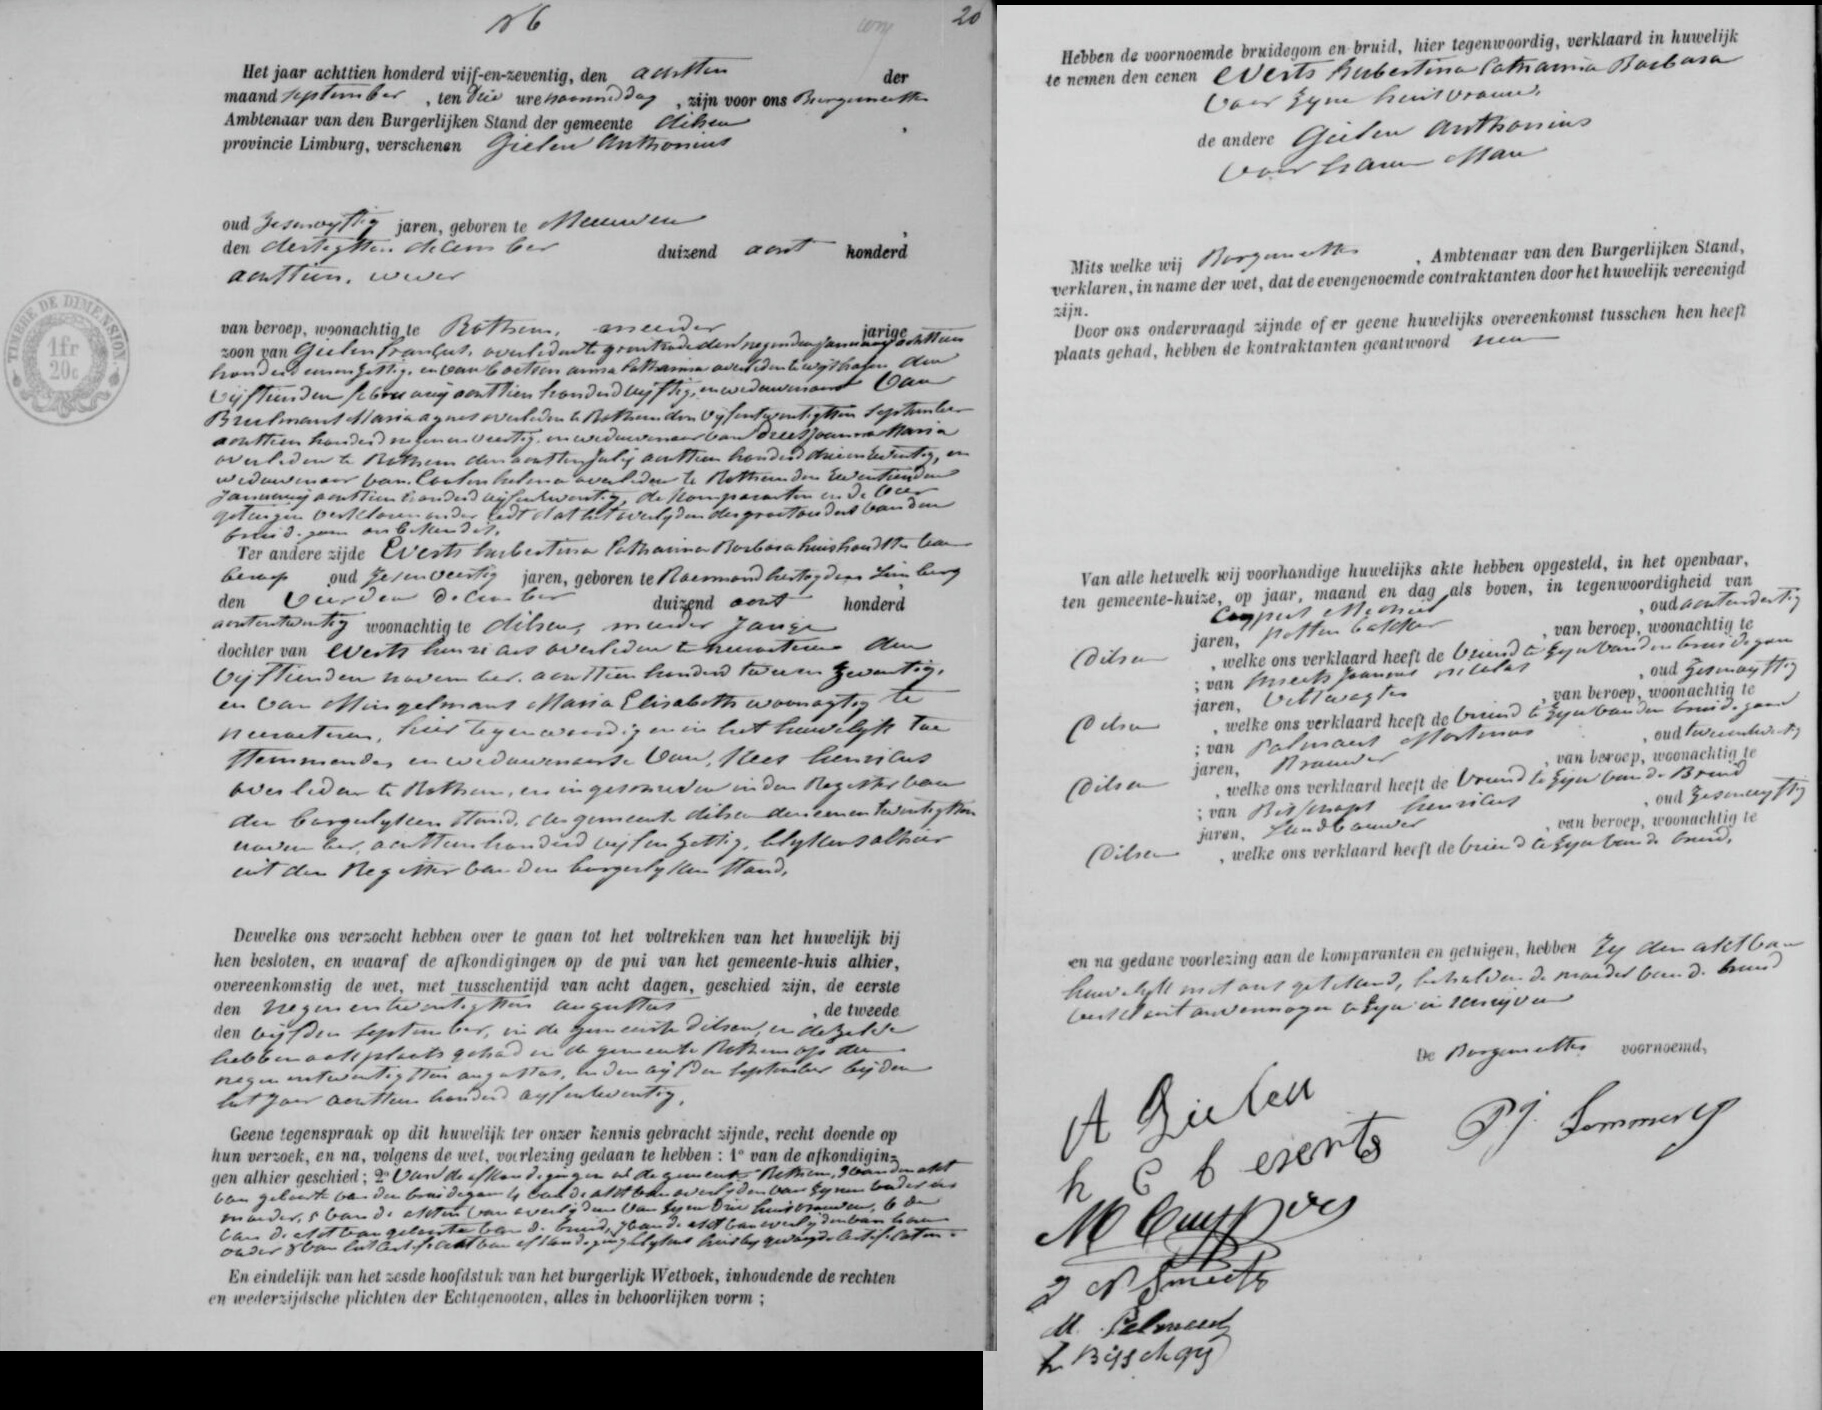 N 6
20
Het jaar achttien honderd vijf-en-zeventig, den achtten der
maand september , ten drie ure namiddag , zijn voor ons Burgemeester
Ambtenaar van den Burgerlijken Stand der gemeente dilsen ,
provincie Limburg, verschenen Gielen Anthonius
oud Zesenvyftig jaren, geboren te Meeuwen ,
den dertigsten december duizend acht honderd
achttien, wever
TIMBRE DE DIMENSION
1fr
20c
van beroep, woonachtig te Rothem, meerder jarige
zoon van Gielen Franscus, overleden te den negenden January achttien
honderd en van Anna Catharina overleden te den
vijftienden february achttien honderd vijftig, en weduwenaar van
Maria agnes overleden te Rothem den vijfentwintigsten september
achttien honderd negenenveertig, en weduwenaar van Drees Joanna Maria
overleden te Rothem den achtten July achttien honderd en
weduwenaar van helena overleden te Rothem den
January achttien honderd vijfenzeventig, de komparanten en de vier
getuigen verklaren onder eedt dat het overlyden der grootouders van den
bruidegom onbekend is.
Ter andere zijde Everts hubertina Catharina Barbara huishoudster van
beroep oud zesenveertig jaren, geboren te Roermond hertogdom Limburg
den vierden december duizend acht honderd
achtentwintig woonachtig te dilsen, meerder Jarige
dochter van Everts henricus overleden te neeroeteren den
vijftienden november achttien honderd tweeenzeventig,
en van Mingelmans Maria Elisabeth woonagtig te
neeroeteren, hier tegenwoordig en in het huwelijk toe
stemmende, en weduwenaarse van, Nees henricus
overleden te Rothem, en ingeschreven in den Register van
den burgerlyken stand, der gemeente dilsen den eenentwintigsten
november, achttien honderd vijfenzestig, blykens alhier
uit den Register van den burgerlyken stand,
Dewelke ons verzocht hebben over te gaan tot het voltrekken van het huwelijk bij
hen besloten, en waaraf de afkondigingen op de pui van het gemeente-huis alhier,
overeenkomstig de wet, met tusschentijd van acht dagen, geschied zijn, de eerste
den negenentwintigsten augustus , de tweede
den vijfden september, in de gemeente Dilsen, en dezelve
hebben ook plaats gehad in de gemeente Rothem op den
negenentwintigsten augustus, en den vijfden september bij den
het Jaer achttien honderd vyfenzeventig,
Geene tegenspraak op dit huwelijk ter onzer kennis gebracht zijnde, recht doende op
hun verzoek, en na, volgens de wet, voorlezing gedaan te hebben : 1° van de afkondigin-
gen alhier geschied ; 2° van de afkondigingen in de gemeente Rothem, 3 van den akt
van geboorte van den bruidegom 4 van de akt van overlyden van zynen vader en
moeder, 5 van de akten van overlyden van zyne drie huisvrouwen, 6 den
van de akt van geboorte van de bruid, 7 van de akt van overlyden van haren
vader 8 van het certificaat van afkondiging blykens hierby gevoegde certificaten.
En eindelijk van het zesde hoofdstuk van het burgerlijk Wetboek, inhoudende de rechten
en wederzijdsche plichten der Echtgenooten, alles in behoorlijken vorm ;
Hebben de voornoemde bruidegom en bruid, hier tegenwoordig, verklaard in huwelijk
te nemen den eenen Everts hubertina Catharina Barbara
voor zyne huisvrouw,
de andere Gielen Anthonius
voor haren Man
Mits welke wij Burgemeester , Ambtenaar van den Burgerlijken Stand,
verklaren, in name der wet, dat de evengenoemde contraktanten door het huwelijk vereenigd
zijn.
Door ons ondervraagd zijnde of er geene huwelijks overeenkomst tusschen hen heeft
plaats gehad, hebben de kontraktanten geantwoord neen
Van alle hetwelk wij voorhandige huwelijks akte hebben opgesteld, in het openbaar,
ten gemeente-huize, op jaar, maand en dag als boven, in tegenwoordigheid van
Cuypers Michiel , oud achtendertig
jaren, pottenbakker , van beroep, woonachtig te
Dilsen , welke ons verklaard heeft de vriend te zyn van den bruidegom
; van Smeets Joannes nicolas , oud zesenvyftig
jaren, veltwagter , van beroep, woonachtig te
Dilsen , welke ons verklaard heeft de vriend te zyn van den bruidegom
; van Palmaers Martinus , oud tweeentwintig
jaren, Brouwer , van beroep, woonachtig te
Dilsen , welke ons verklaard heeft de vriend te zyn van de Bruid
; van Bisschops henricus , oud zesenvyftig
jaren, Landbouwer , van beroep, woonachtig te
Dilsen , welke ons verklaard heeft de vriend te zyn van de bruid,
en na gedane voorlezing aan de komparanten en getuigen, hebben zy den akt van
huwelyk met ons getekend, behalven de moeder van de bruid
verklaart onvermogen te zyn in schryven
De Burgemeester voornoemd,
A Gielen
h C b everts
P J Sommers
M Cuyppers
J N Smeets
M. Palmaers
h Bisschops